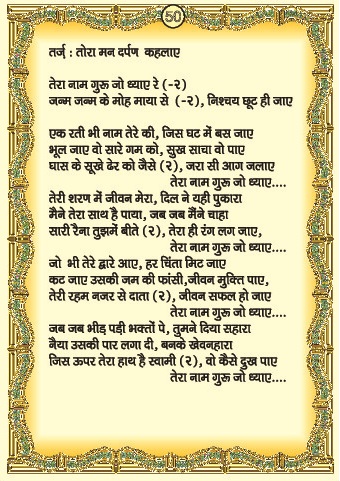 50
तर्ज : तोरा मन दर्पण कहलाए
तेरा नाम गुरू जो ध्याए रे (-२)
जन्म जन्म के मोह माया से (-२), निश्चय छूट ही जाए
एक रती भी नाम तेरे की, जिस घट में बस जाए
भूल जाए वो सारे गम को, सुख साचा वो पाए
घास के सूखे ढेर को जैसे (२), जरा सी आग जलाए
तेरा नाम गुरू जो ध्याए....
तेरी शरण में जीवन मेरा, दिल ने यही पुकारा
मैने तेरा साथ है पाया, जब जब मैंने चाहा
सारी रैना तुझमें बीते (२), तेरा ही रंग लग जाए,
तेरा नाम गुरू जो ध्याए....
जो भी तेरे द्वारे आए, हर चिंता मिट जाए
कट जाए उसकी जम की फांसी,जीवन मुक्ति पाए,
तेरी रहम नजर से दाता (२), जीवन सफल हो जाए
तेरा नाम गुरू जो ध्याए....
जब जब भीड़ पड़ी भक्तों पे, तुमने दिया सहारा
नैया उसकी पार लगा दी, बनके खेवनहारा
जिस ऊपर तेरा हाथ है स्वामी (२), वो कैसे दुख पाए
तेरा नाम गुरू जो ध्याए....